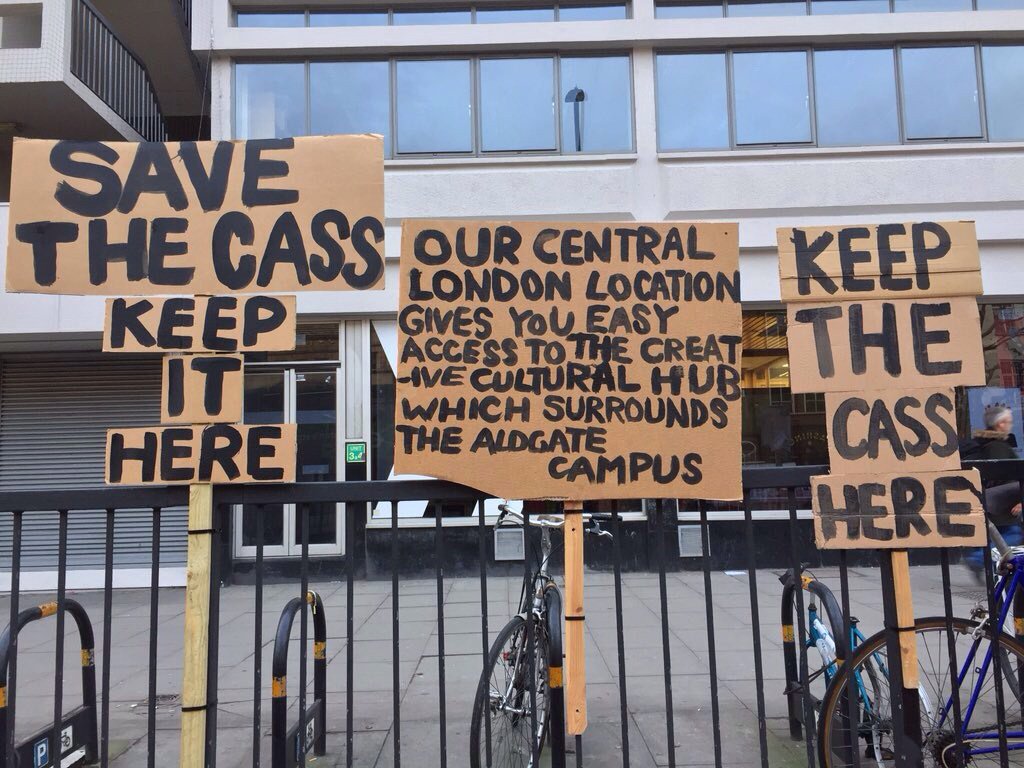 SAVE
THE CASS
KEEP
IT
HERE
OUR CENTRAL
LONDON LOCATION
GIVES YOU EASY
ACCESS TO THE CREAT
-IVE CULTURAL HUB
WHICH SURROUNDS
THE ALDGATE
CAMPUS
KEEP
THE
CASS
HERE
UNIT
3
P